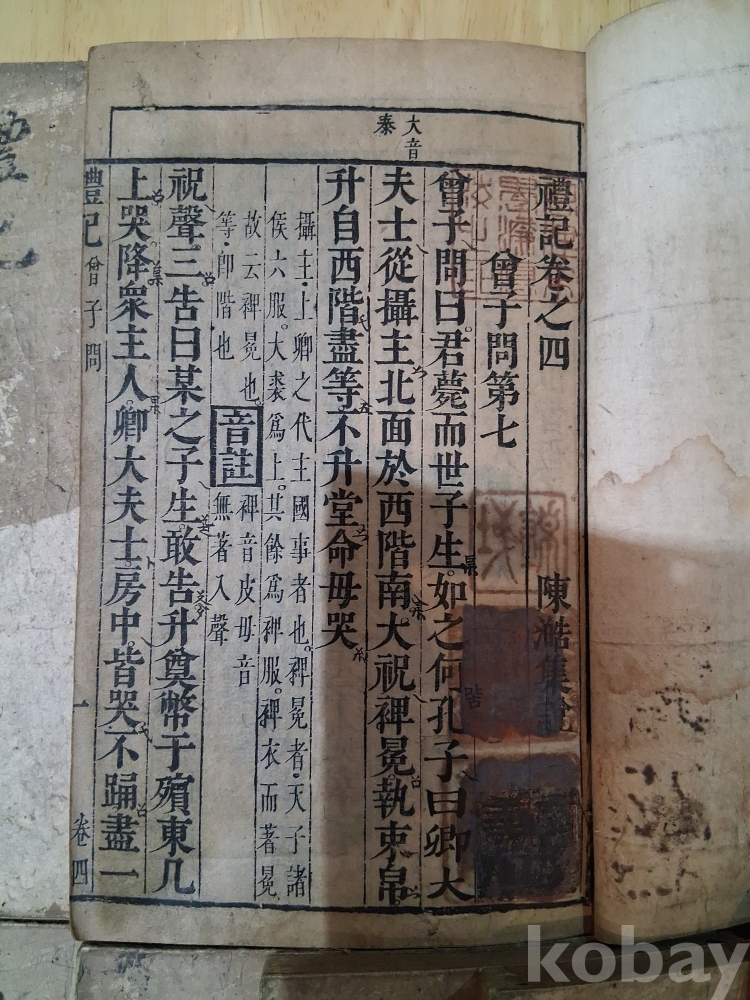 大音
泰
禮記卷之四
陳澔集註
曾子問第七
曾子問曰君薨而世子生如之何孔子曰卿大
夫士從攝主北面於西階南大祝裨冕執束帛
升自西階盡等不升堂命毋哭
攝主上卿之代主國事者也裨冕者天子諸
侯六服大裘爲上其餘爲裨服裨衣而著冕
故云裨冕也 音註 裨音皮毋音
等即階也 無著入聲
祝聲三告曰某之子生敢告升奠幣于殯東几
上哭降衆主人卿大夫士房中皆哭不踊盡一
禮記 曾子問 一 卷四
kobay